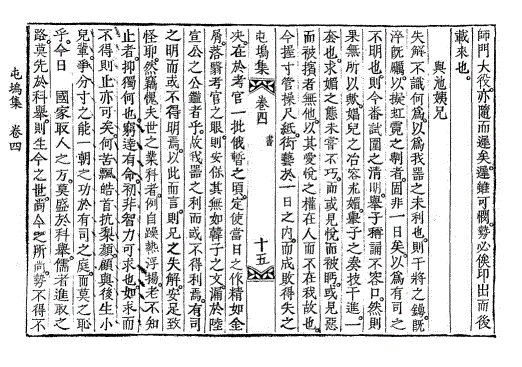 師門大役亦隨而遲矣遲雖可憫勢必俟印出而後
載來也
與池姨兄
失解不識何爲以爲我器之未利也則干將之鑄旣
淬旣礪以掞虹霓之剸者固非一日矣以爲有司之
不明也則今番試圍之淸明擧子稱誦不容口然則
果無所以歟娼兒之冶容求媚擧子之奏技干進一
套也求媚之態未嘗不巧而或見悅而被眄或見惡
而被擯者無他以其愛悅之權在人而不在我故也
今握寸管操尺紙衒藝於一日之內而成敗得失之
屯塢集 卷四 書 十五
决在於考官一批俄暫之頃定使當日之作精如金
屑落翳考官之眼則安保其無如韓子之文漏於陸
宣公之公鑑者乎故我器之利而或不得利焉有司
之明而或不得明焉以此而言則兄之失解安足致
怪耶然竊慨夫世之業科者例自躁熱浮揚老不知
止者抑獨何也窮達有命初非智力可求也如求而
不得則止亦可矣何苦飄皓首抗梨顔顧與後生小
兒輩爭分寸之能一朝之功於有司之庭而莫之恥
乎今日 國家取人之方莫盛於科擧儒者進取之
路莫先於科擧則生今之世尙今之所尙勢不得不
屯塢集 卷四